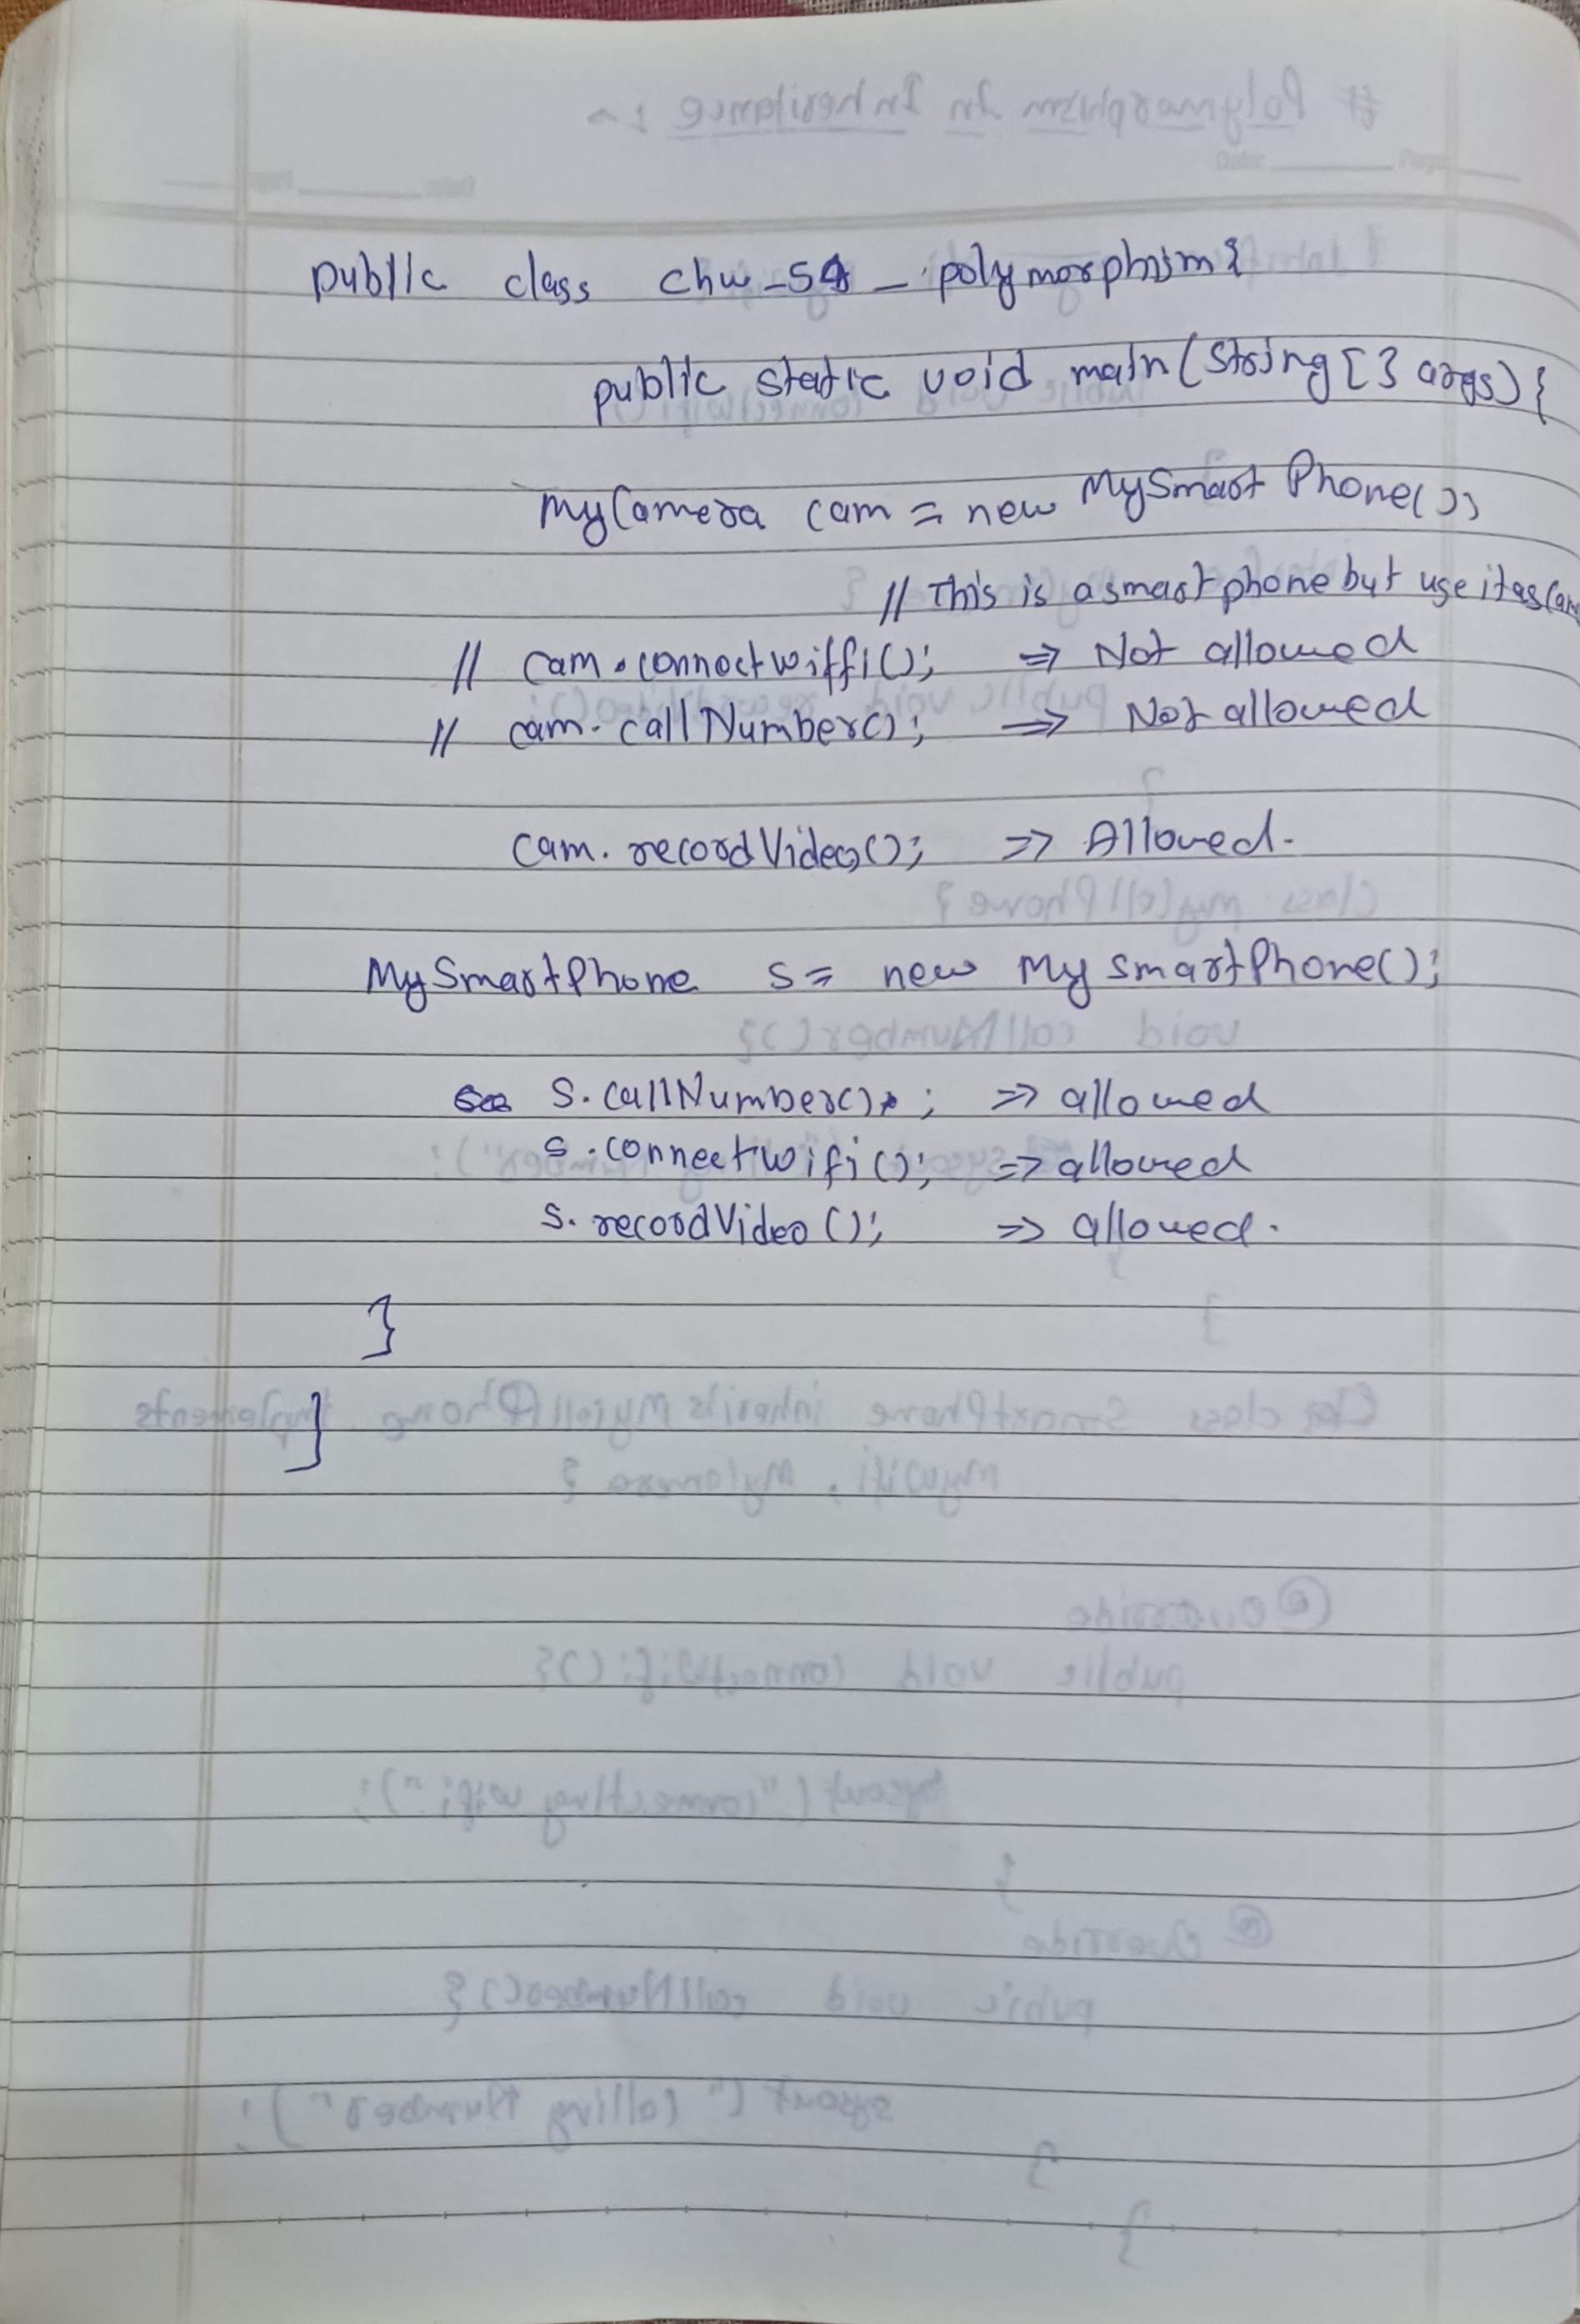 public class chw_54_polymorphism{
public static void main(String[] args){
MyCamera cam = new MySmartPhone();
// This is a smart phone but use it as Cam
// cam.connectwiffi(); => Not allowed
// cam.callNumber(); => Not allowed
cam.recordVideo(); => Allowed.
MySmartPhone s = new MysmartPhone();
s.callNumber(); => allowed
s.connectwifi(); => allowed
s.recordVideo(); => allowed.
}
}